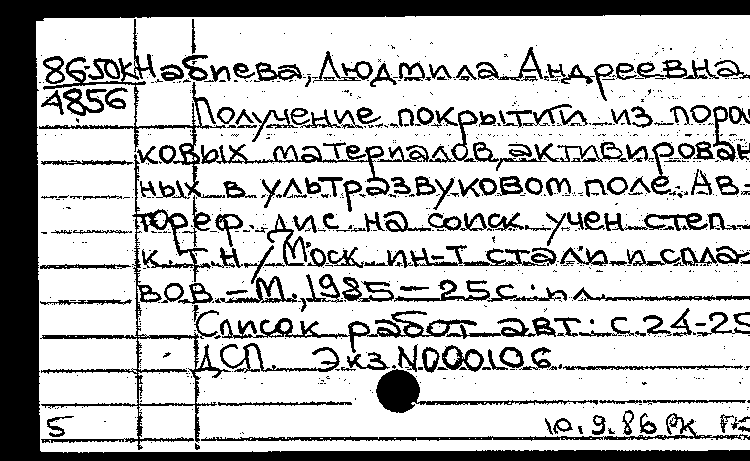 86-50к Набиева, Людмила Андреевна
4856
Получение покрытий из порош
ковых материалов, активирован
ных в ультразвуковом поле. Ав-
тореф. дис на соиск. учен степ
к.т.н / Моск ин-т стали и спла-
вов. – М., 1985 – 25с. ил.
Список работ авт: с 24-25
ДСП. Экз N000106
5 10.9.86 РК